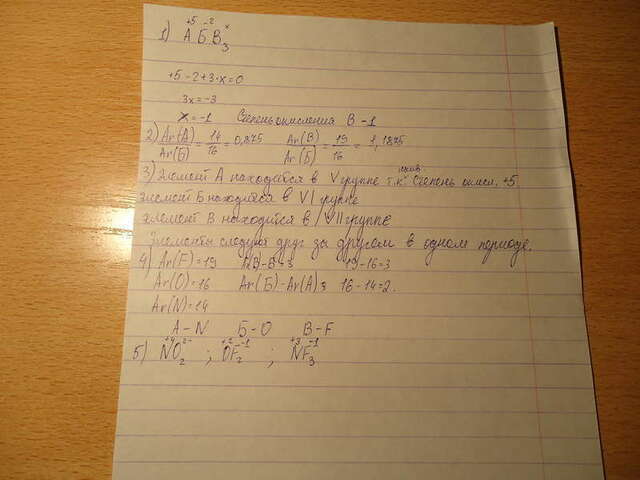 +5 -2 x
1) А Б В3
+5-2+3·x=0
3x=-3
x=-1 Степень окисления В -1
2) Ar(А)/Ar(Б) = 14/16 = 0,875 Ar(В)/Ar(Б) = 19/16 = 1,1875
макс.
3) Элемент А находится в V группе т.к. степень окисл. +5
элемент Б находится в VI группе
элемент В находится в VII группе
Элементы следуют друг за другом в одном периоде.
4) Ar(F)=19 19-16=3
Ar(O)=16 Ar(Б)-Ar(А) 16-14=2.
Ar(N)=14
А-N Б-O В-F
+4 2- +2 -1 +3 -1
5) NO2 ; OF2 ; NF3